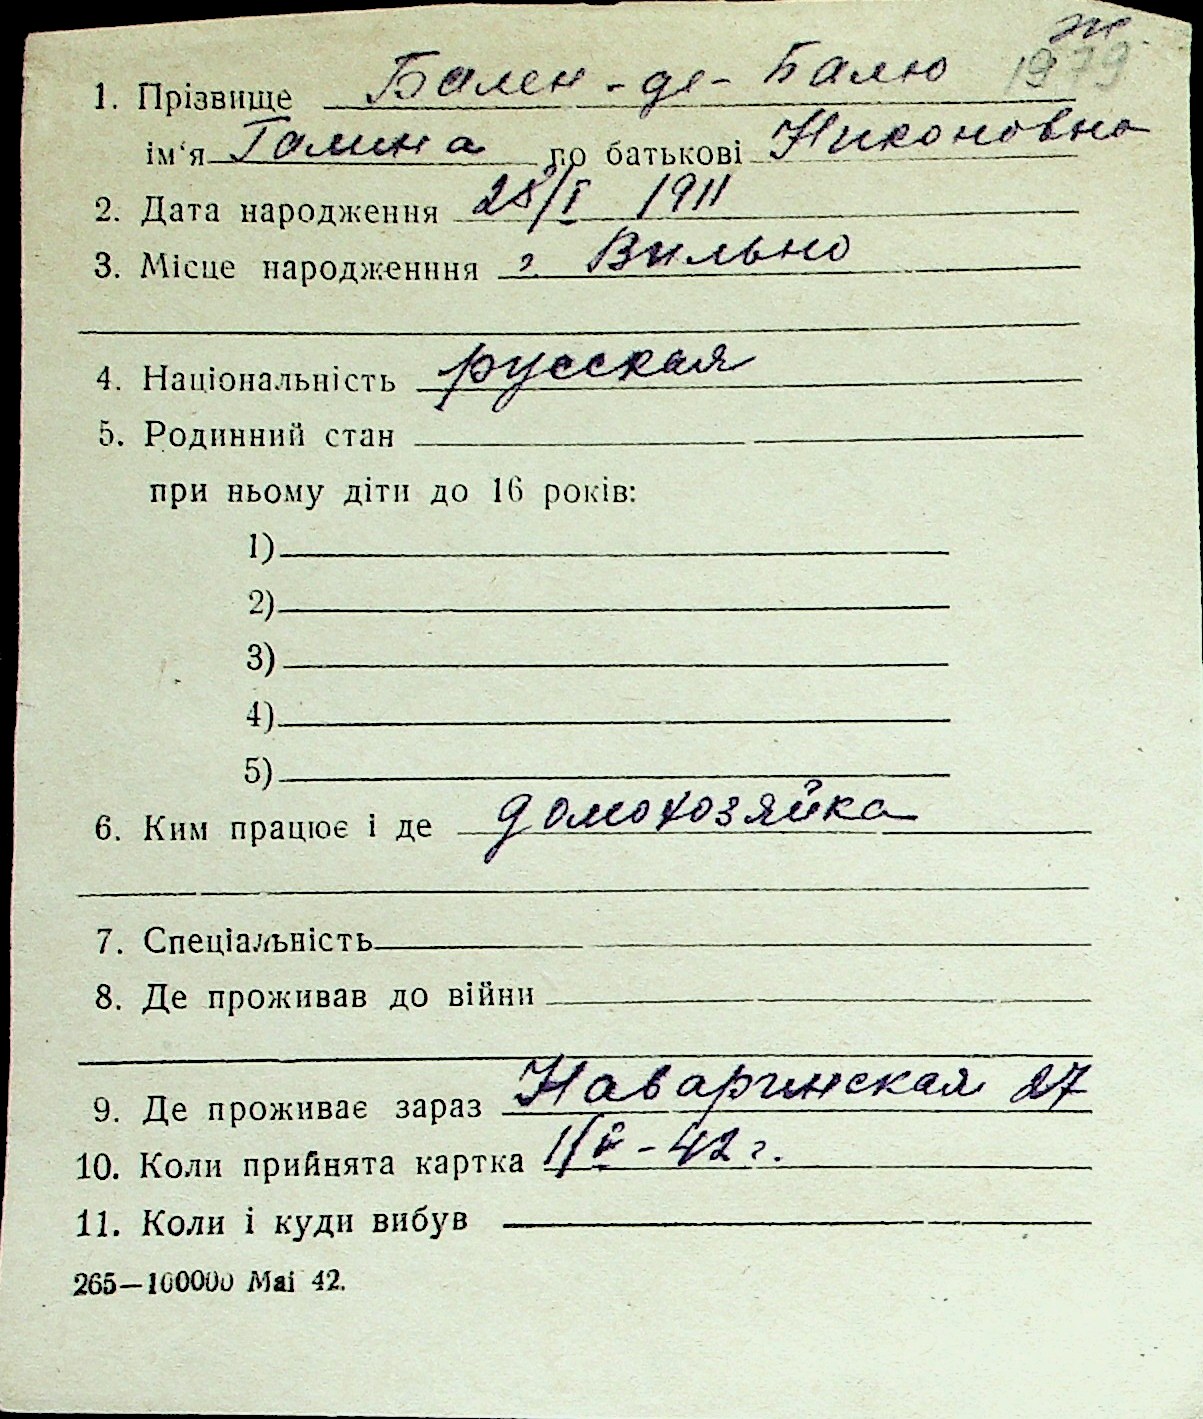 ж
1979
1. Прізвище Бален-де-Балю
ім'я Галина по батькові Никоновна
2. Дата народження 28/I 1911
3. Місце народженння г. Вильно
4. Національність русская
5. Родинний стан
при ньому діти до 16 років:
1)
2)
3)
4)
5)
6. Ким працює і де домохозяйка
7. Спеціальність
8. Де проживав до війни
9. Де проживає зараз Наваринская 27
10. Коли прийнята картка - 42 г.
11. Коли і куди вибув
265—100000 Mai 42.